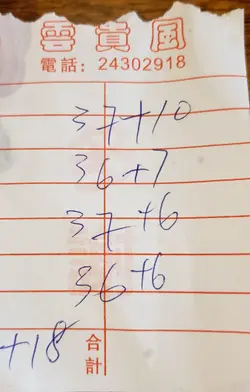 雲貴風
電話：24302918
37+10
36+7
37+6
36+6
+18
合計